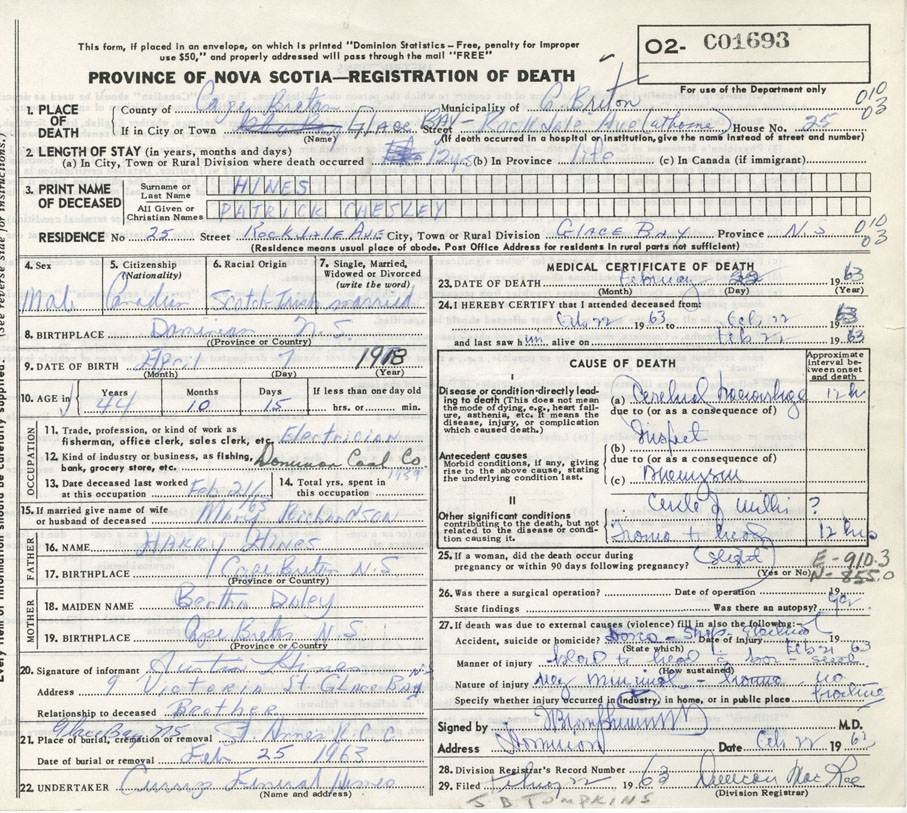 This form, if placed in an envelope, on which is printed "Dominion Statistics – Free, penalty for improper
use $50," and properly addressed will pass through the mail "FREE"
O2- C01693
PROVINCE OF NOVA SCOTIA—REGISTRATION OF DEATH
For use of the Department only
1. PLACE OF DEATH
County of Cape Breton Municipality of C. Breton
010
03
If in City or Town Glace Bay Street Rockdale Ave (at home) House No. 25
(Name) (If death occurred in a hospital or institution, give the name instead of street and number)
2. LENGTH OF STAY (in years, months and days)
(a) In City, Town or Rural Division where death occurred 12 yrs (b) In Province life (c) In Canada (if immigrant)
3. PRINT NAME OF DECEASED
Surname or Last Name HINES
All Given or Christian Names PATRICK CHESLEY
RESIDENCE No 25 Street Rockdale Ave City, Town or Rural Division Glace Bay Province N.S
010
03
(Residence means usual place of abode. Post Office Address for residents in rural parts not sufficient)
4. Sex
5. Citizenship (Nationality)
6. Racial Origin
7. Single, Married, Widowed or Divorced (write the word)
Male Canadian Scotch Irish married
8. BIRTHPLACE Dominion N.S.
(Province or Country)
9. DATE OF BIRTH April 7 1918
(Month) (Day) (Year)
10. AGE in
Years Months Days If less than one day old
44 10 15 hrs. or min.
OCCUPATION
11. Trade, profession, or kind of work as
fisherman, office clerk, sales clerk, etc. Electrician
12. Kind of industry or business, as fishing,
bank, grocery store, etc. Dominion Coal Co.
13. Date deceased last worked
at this occupation Feb 21/63
14. Total yrs. spent in
this occupation
15. If married give name of wife
or husband of deceased Mary Richardson
FATHER
16. NAME HARRY HINES
17. BIRTHPLACE Cape Breton N.S
(Province or Country)
MOTHER
18. MAIDEN NAME Bertha
19. BIRTHPLACE Cape Breton N.S.
(Province or Country)
20. Signature of informant Hines
Address 9 Victoria St. Glace Bay N.S
Relationship to deceased Brother
Glace Bay NS
21. Place of burial, cremation or removal St Annes R.C.C
Date of burial or removal Feb 25 1963
22. UNDERTAKER Funeral Home
(Name and address)
MEDICAL CERTIFICATE OF DEATH
23. DATE OF DEATH February 22 1963
(Month) (Day) (Year)
24. I HEREBY CERTIFY that I attended deceased from:
Feb. 22 1963 to Feb. 22 1963
and last saw him alive on Feb 22 1963
CAUSE OF DEATH
Approximate interval between onset and death
I
Disease or condition directly leading to death (This does not mean the mode of dying, e.g., heart failure, asthenia, etc. It means the disease, injury, or complication which caused death.)
(a) Cerebral hemorrhage 12 hrs
due to (or as a consequence of)
Antecedent causes
Morbid conditions, if any, giving rise to the above cause, stating the underlying condition last.
(b)
due to (or as a consequence of)
(c)
II
Other significant conditions
contributing to the death, but not related to the disease or condition causing it.
Circle of Willis ?
Trauma to head 12 hrs
(slight)
25. If a woman, did the death occur during
pregnancy or within 90 days following pregnancy?
(Yes or No)
E-910.3
N-855.0
26. Was there a surgical operation? Date of operation 19
State findings Was there an autopsy? yes
27. If death was due to external causes (violence) fill in also the following:
Accident, suicide or homicide? Date of injury Feb 21 63
(State which)
Manner of injury blow to head
(How sustained)
Nature of injury very minimal – trauma no fracture
Specify whether injury occurred in industry, in home, or in public place
Signed by M.D.
Address Dominion Date Feb 22 1963
28. Division Registrar's Record Number
29. Filed Feby 22 1963 Duncan Mac Rae
(Division Registrar)
J B TOMPKINS